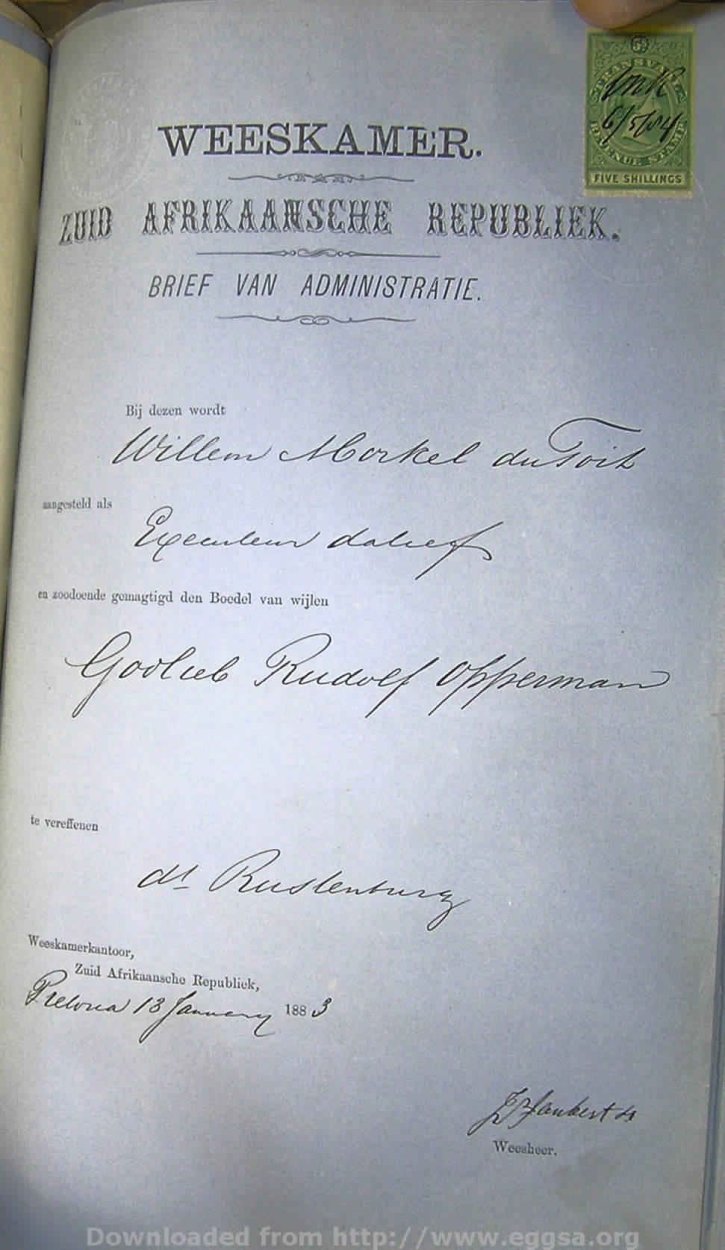 TRANSVAAL
REVENUE STAMP
6/5/04
FIVE SHILLINGS
WEESKAMER.
ZUID AFRIKAANSCHE REPUBLIEK.
BRIEF VAN ADMINISTRATIE.
Bij dezen wordt
Willem Morkel du Toit
aangesteld als
Executeur datief
en zoodoende gemagtigd den Boedel van wijlen
Godlieb Rudolf Opperman
te vereffenen
dt Rustenburg
Weeskamerkantoor,
Zuid Afrikaansche Republiek,
Pretoria 13 January 1883
Joubert
Weesheer.
Downloaded from http://www.eggsa.org